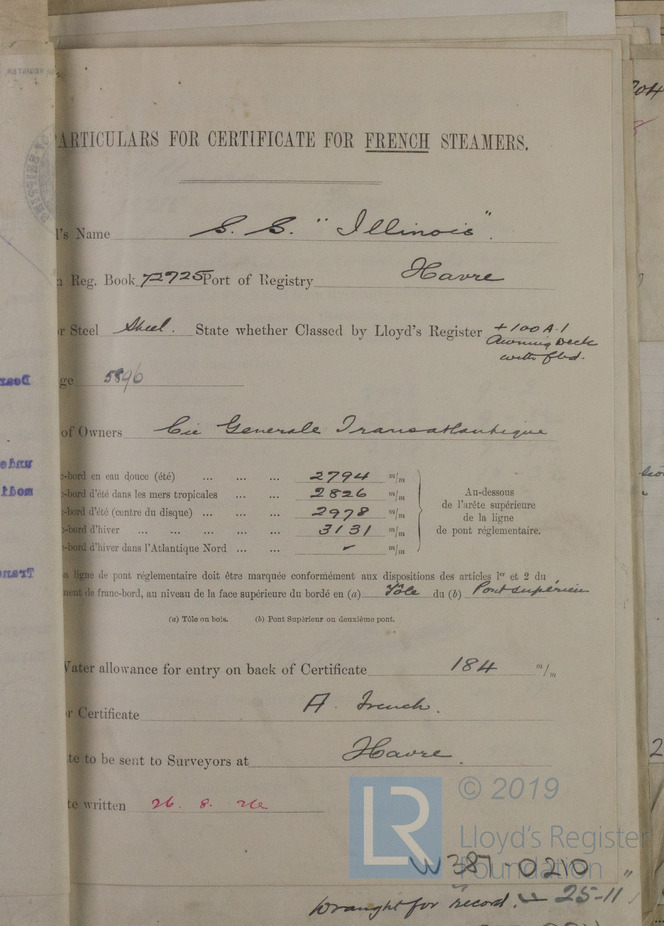 ARTICULARS FOR CERTIFICATE FOR FRENCH STEAMERS.
l's Name S. S. "Illinois".
n Reg. Book 72725 Port of Registry Havre
or Steel Steel. State whether Classed by Lloyd's Register +100A.1
Awning Deck
with fbd.
ge 5896
of Owners Cie Generale Transatlantique
c-bord en eau douce (été) ... ... ... 2794 m/m
c-bord d'été dans les mers tropicales ... ... 2826 m/m
c-bord d'été (centre du disque) ... ... ... 2978 m/m
c-bord d'hiver ... ... ... ... ... 3131 m/m
c-bord d'hiver dans l'Atlantique Nord ... ... ✓ m/m
Au-dessous
de l'arête supérieure
de la ligne
de pont réglementaire.
a ligne de pont réglementaire doit être marquée conformément aux dispositions des articles 1er et 2 du
ment de franc-bord, au niveau de la face supérieure du bordé en (a) Tôle du (b) Pont supérieur
(a) Tôle ou bois. (b) Pont Supérieur ou deuxième pont.
Water allowance for entry on back of Certificate 184 m/m
or Certificate A. French.
te to be sent to Surveyors at Havre.
te written 26. 8. 26
© 2019
LR
Lloyd's Register
Foundation
W387-0210
Wrought for record. 25-11
Dear
unde
modi
Trans